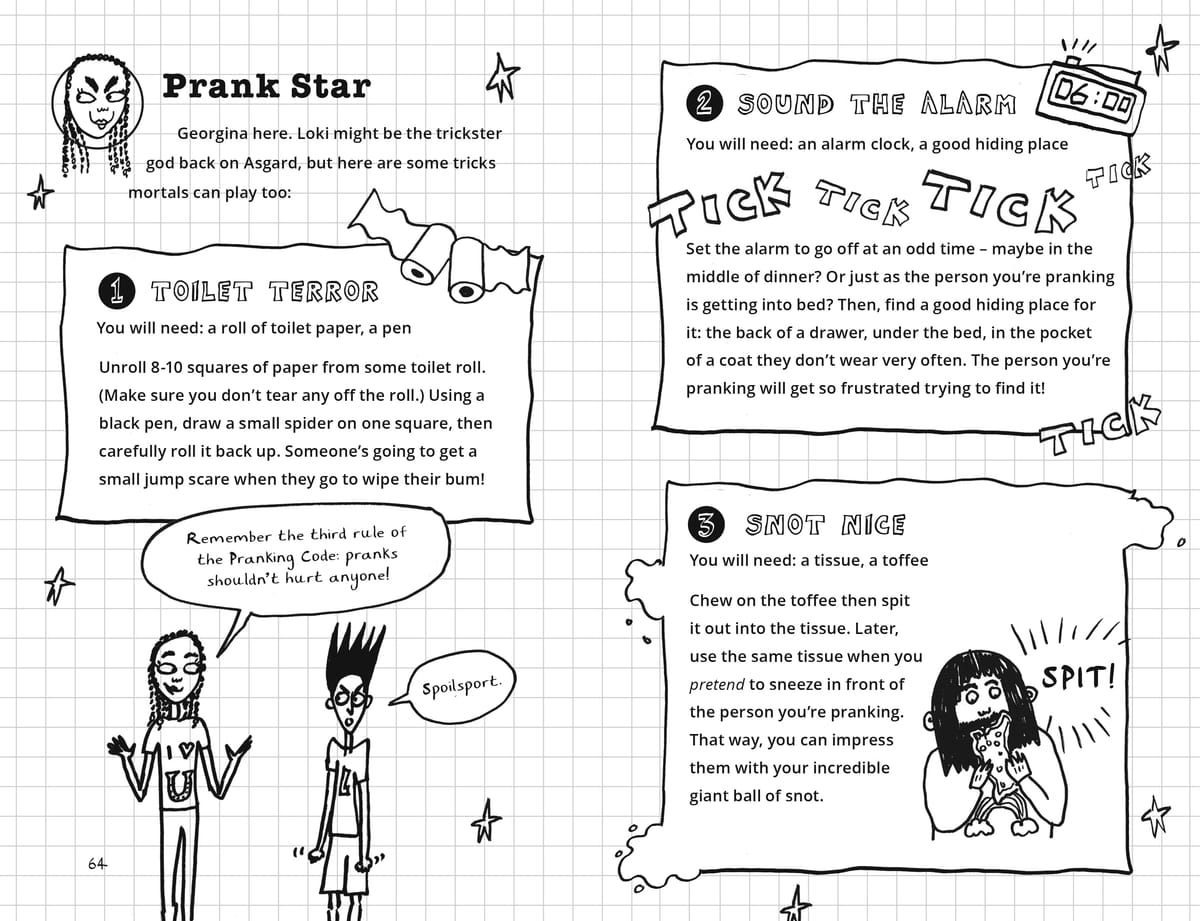 Prank Star
Georgina here. Loki might be the trickster
god back on Asgard, but here are some tricks
mortals can play too:
1 TOILET TERROR
You will need: a roll of toilet paper, a pen
Unroll 8-10 squares of paper from some toilet roll.
(Make sure you don’t tear any off the roll.) Using a
black pen, draw a small spider on one square, then
carefully roll it back up. Someone’s going to get a
small jump scare when they go to wipe their bum!
Remember the third rule of
the Pranking Code: pranks
shouldn’t hurt anyone!
Spoilsport.
I ♥
U
L
64
06:00
2 SOUND THE ALARM
You will need: an alarm clock, a good hiding place
TICK TICK TICK TICK
Set the alarm to go off at an odd time – maybe in the
middle of dinner? Or just as the person you’re pranking
is getting into bed? Then, find a good hiding place for
it: the back of a drawer, under the bed, in the pocket
of a coat they don’t wear very often. The person you’re
pranking will get so frustrated trying to find it!
TICK
3 SNOT NICE
You will need: a tissue, a toffee
Chew on the toffee then spit
it out into the tissue. Later,
use the same tissue when you
pretend to sneeze in front of
the person you’re pranking.
That way, you can impress
them with your incredible
giant ball of snot.
SPIT!